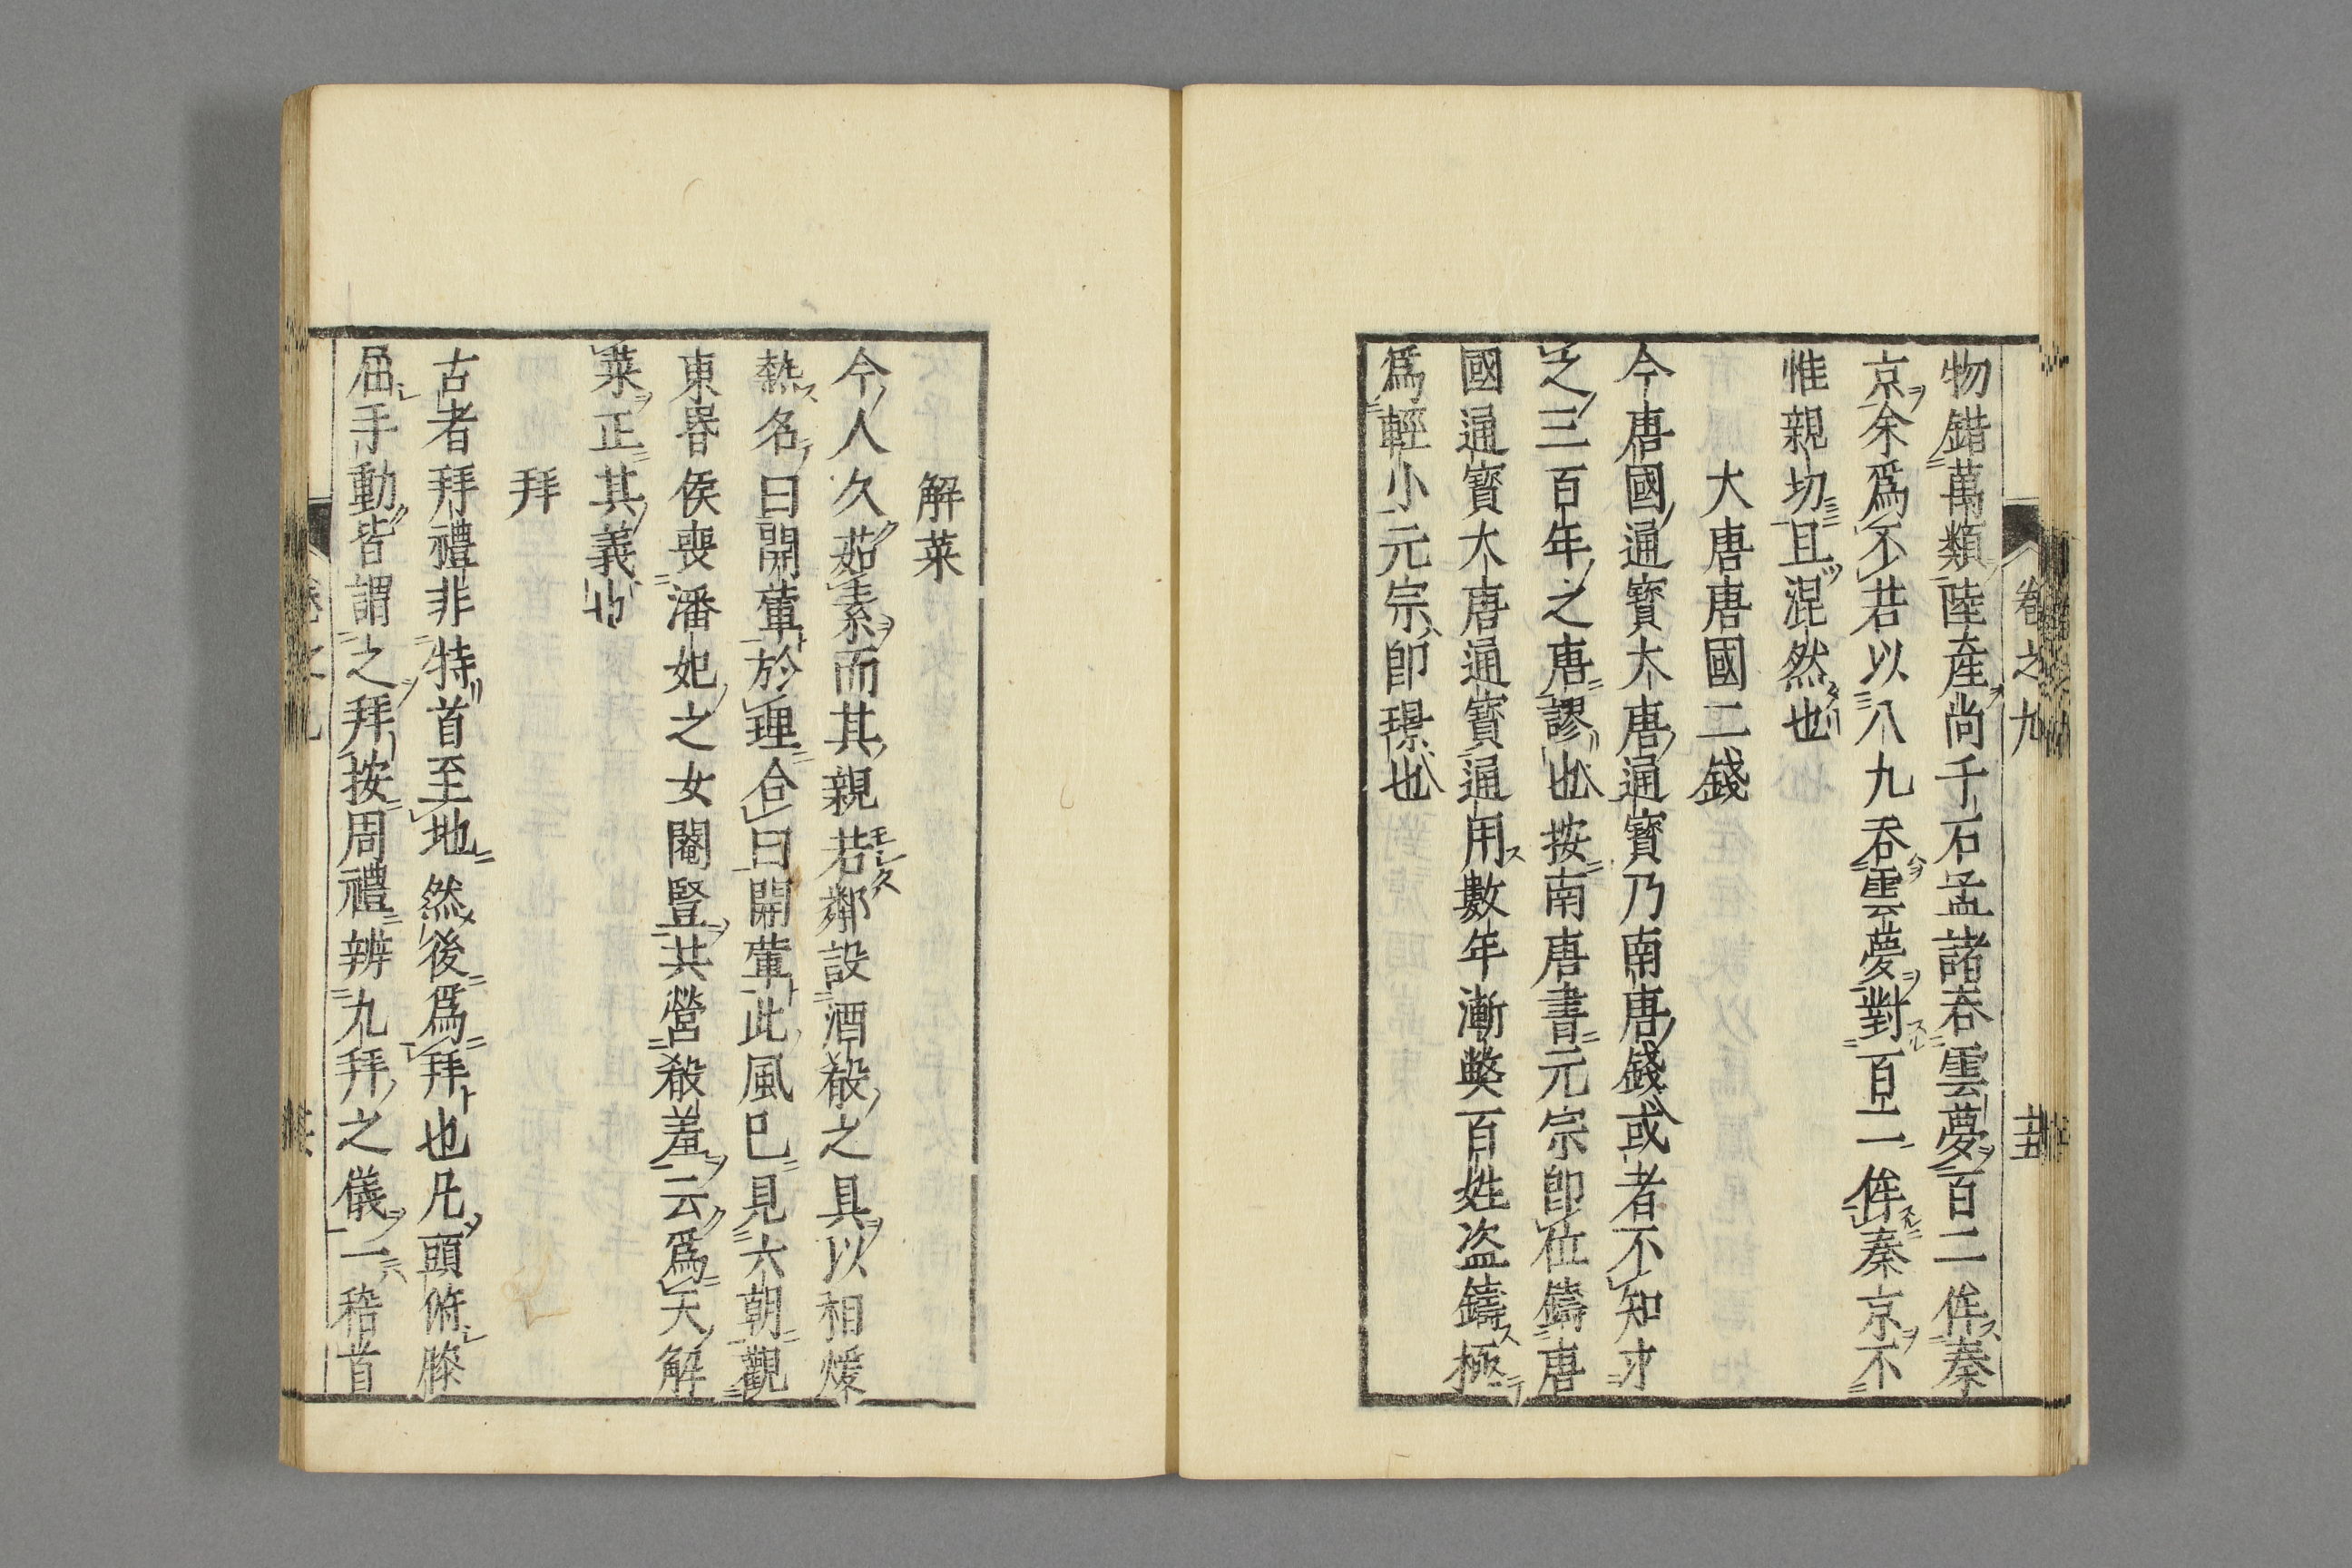 卷之九
物錯萬類陸產尚千石孟諸吞雲夢百二侔秦
京余爲不若以八九吞雲夢對百二侔秦京不
惟親切且混然也
大唐唐國二錢
今唐國通寳大唐通寳乃南唐錢或者不知才
之三百年之唐謬也按南唐書元宗卽位鑄唐
國通寳大唐通寳通用數年漸獘百姓盗鑄極
爲輕小元宗卽璟也
解菜
今人久茹素而其親若鄰設酒殽之具以相煖
熱名曰開葷於理合曰開葷此風巳見六朝觀
東昬侯喪潘妃之女閹豎共營殽羞云爲天解
菜正其義也
拜
古者拜禮非特首至地然後爲拜也凡頭俯膝
屈手動皆謂之拜按周禮辨九拜之儀一稽首